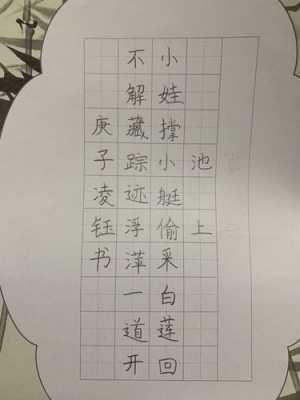 池上
小娃撑小艇偷采白莲回
不解藏踪迹浮萍一道开
庚子凌钰书